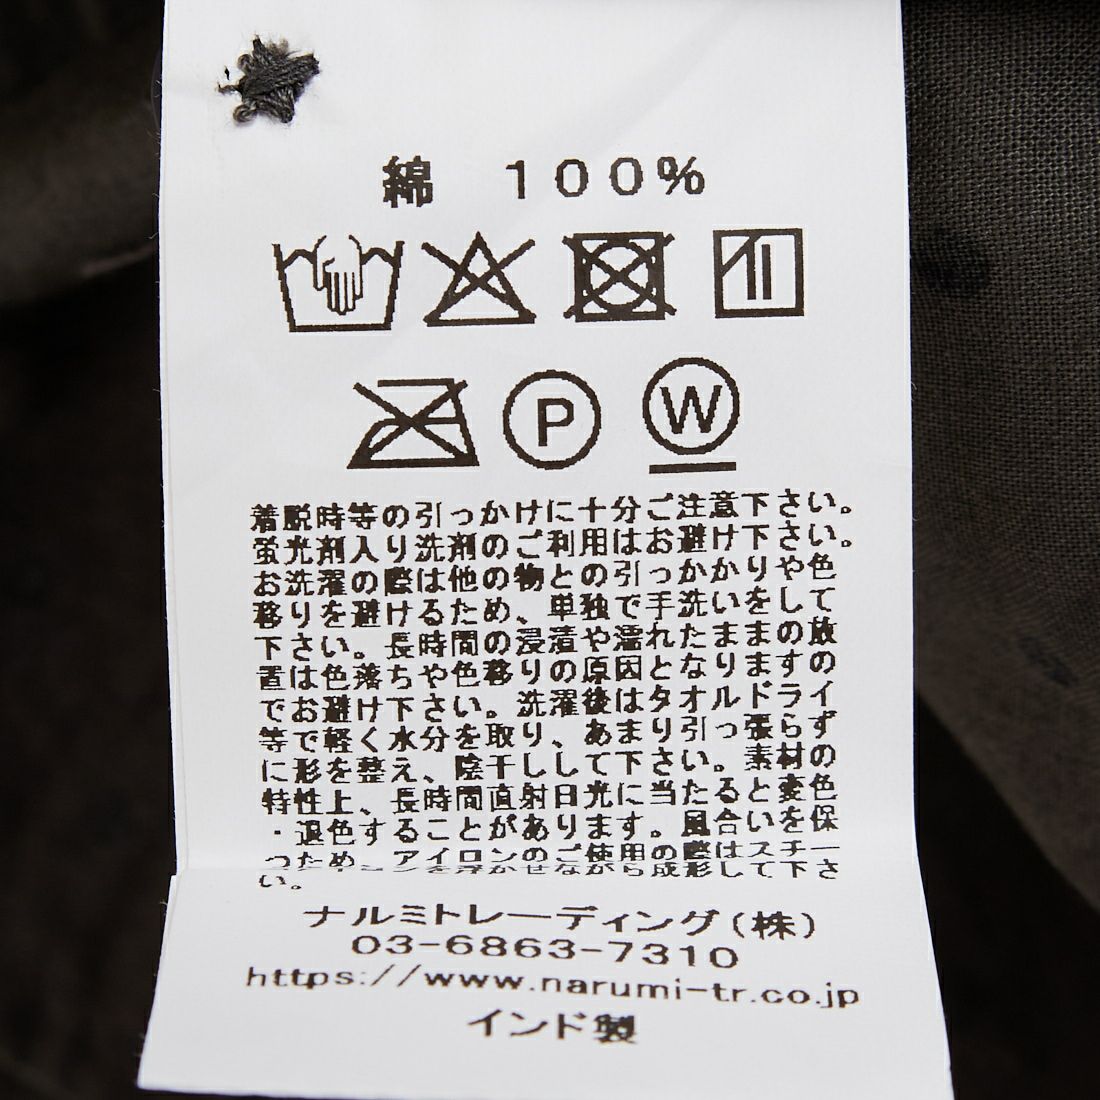 綿 100%
P W
着脱時等の引っかけに十分ご注意下さい。
蛍光剤入り洗剤のご利用はお避け下さい。
お洗濯の際は他の物との引っかかりや色
移りを避けるため、単独で手洗いをして
下さい。長時間の浸漬や濡れたままの放
置は色落ちや色移りの原因となりますの
でお避け下さい。洗濯後はタオルドライ
等で軽く水分を取り、あまり引っ張らず
に形を整え、陰干しして下さい。素材の
特性上、長時間直射日光に当たると変色
・退色することがあります。風合いを保
つため、アイロンのご使用の際はスチー
を浮かせながら成形して下さ
い。
ナルミトレーディング(株)
03-6863-7310
https://www.narumi-tr.co.jp
インド製